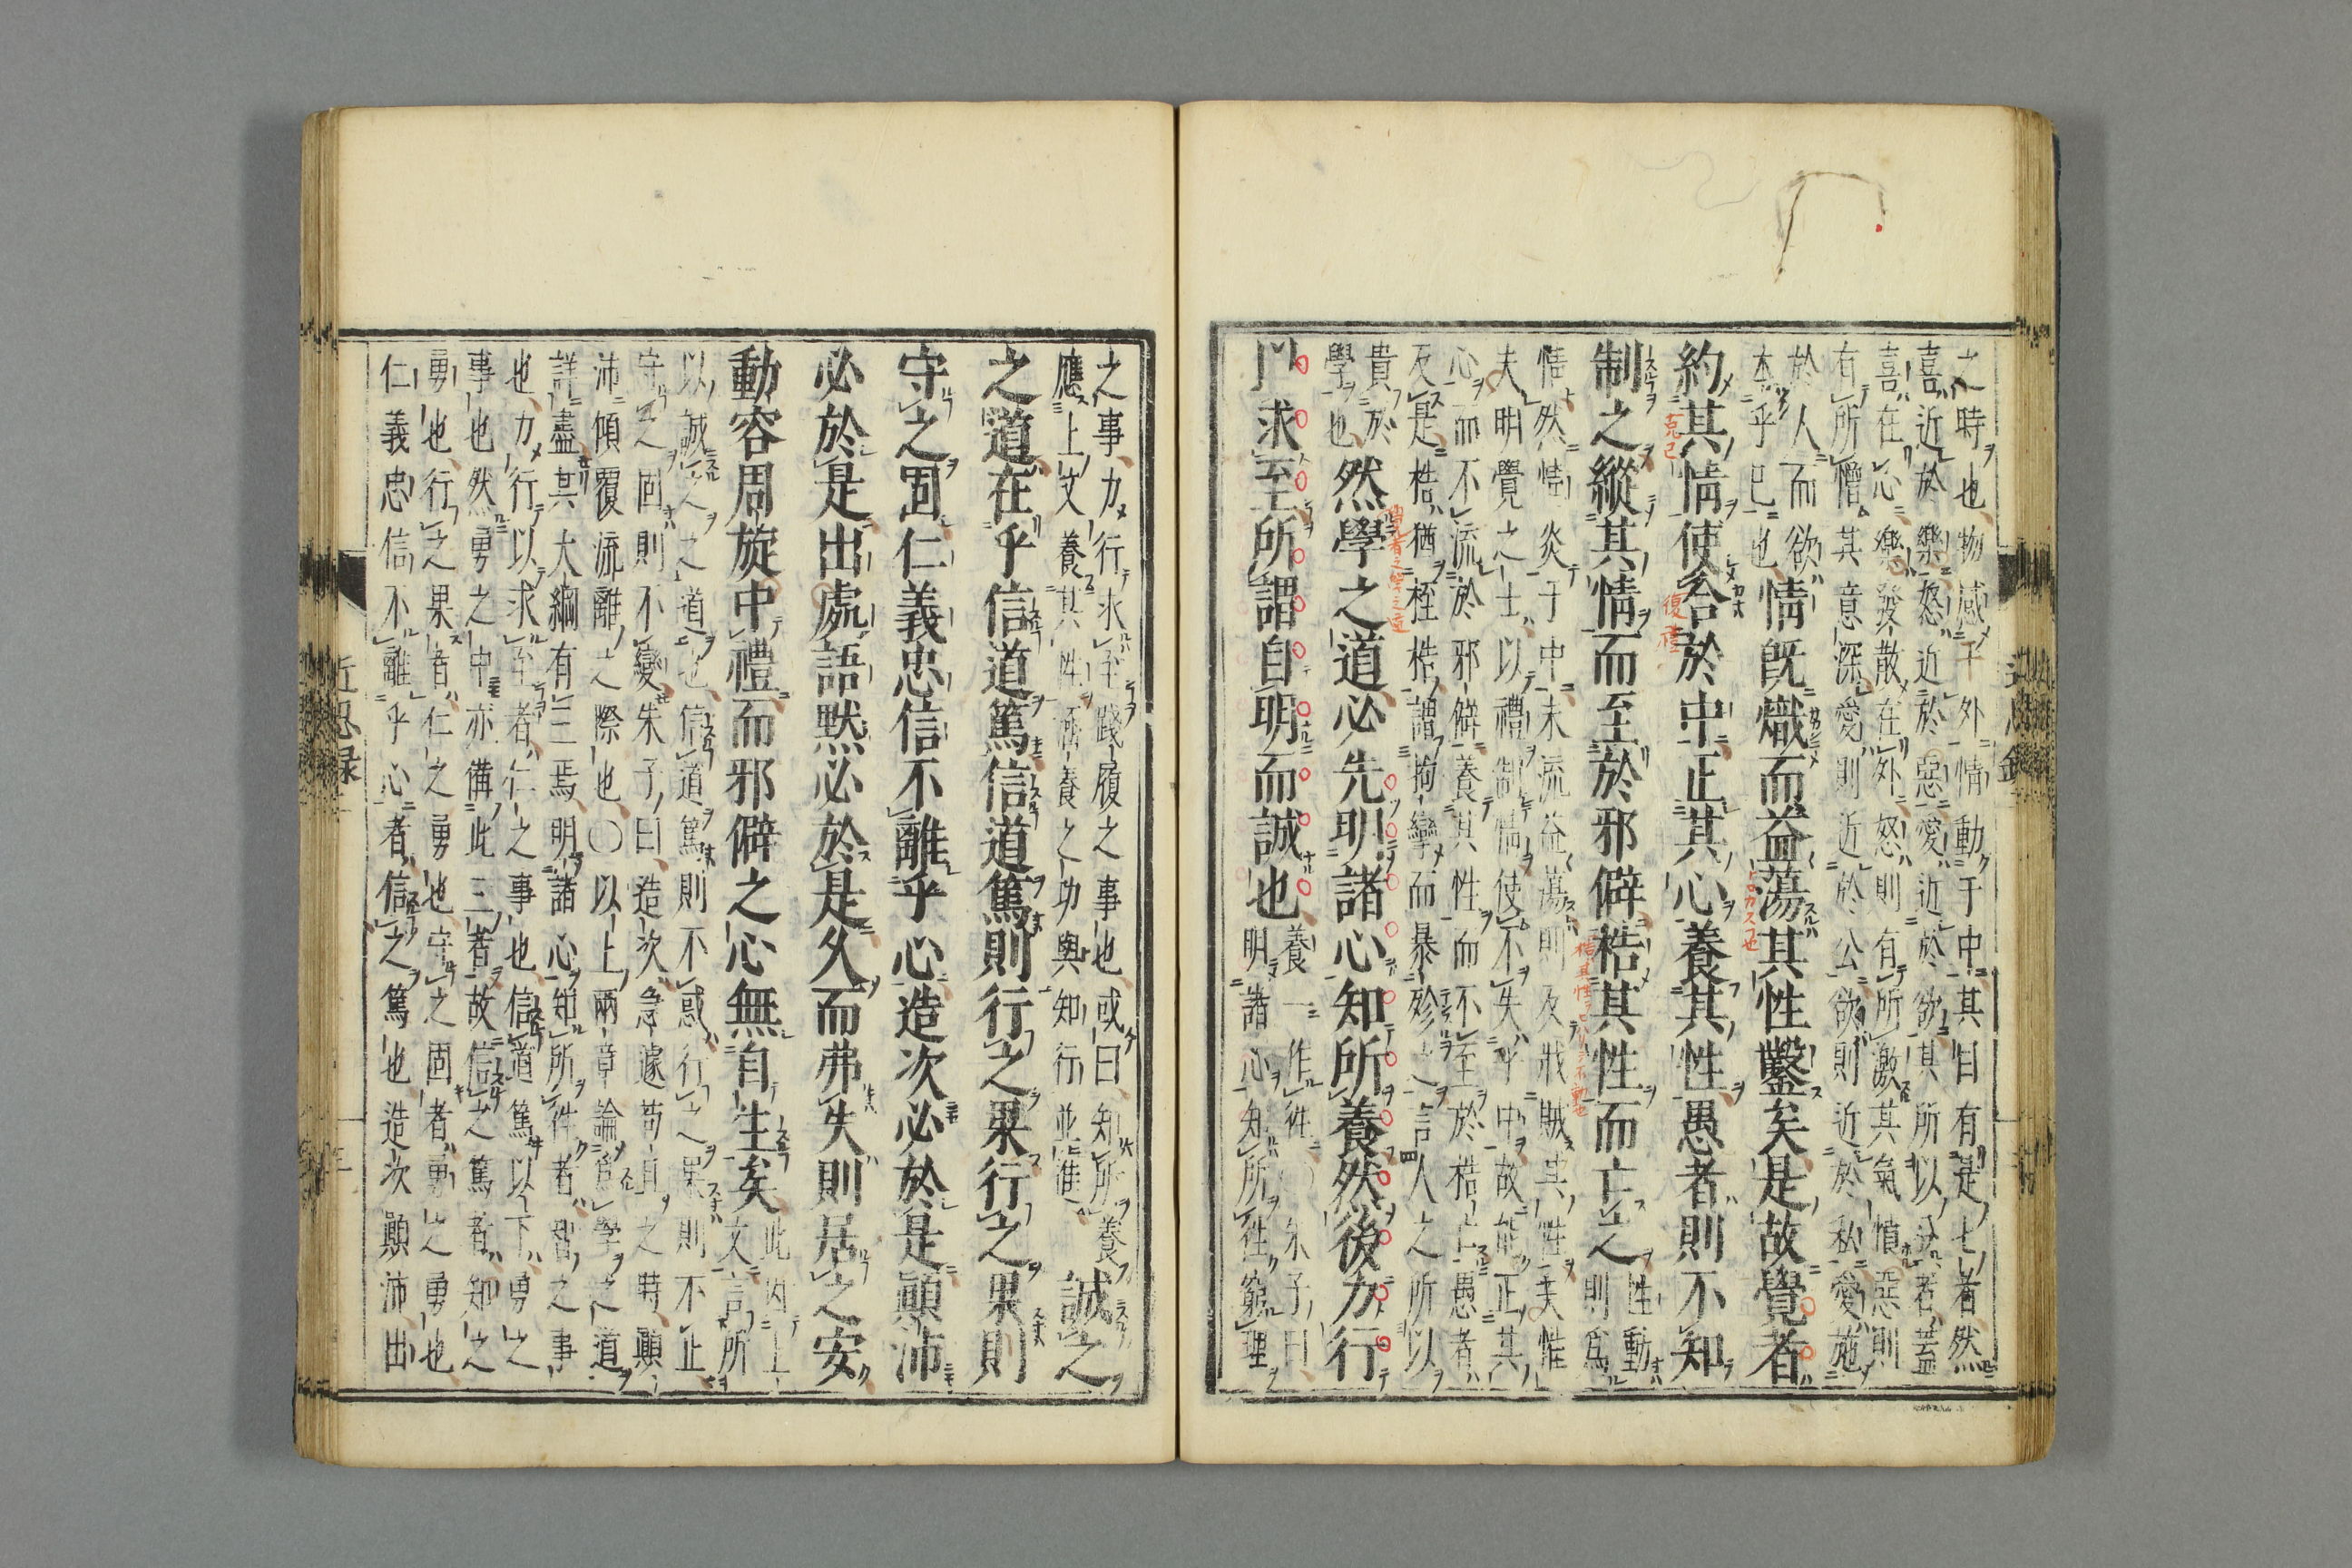 之時也物感于外情動于中其目有是七者然
喜近於樂怒近於惡愛近於欲其所以分者蓋
喜在心樂發散在外怒則有所激其氣憤惡則
有所憎其意深愛則近於公欲則近於私愛施
於人而欲
本乎己也
情既熾而益蕩其性鑿矣是故覺者
約其情使合於中正其心養其性愚者則不知
制之縱其情而至於邪僻梏其性而亡之
性動
則爲
情然情炎于中末流益蕩則反戕賊其性矣惟
夫明覺之士以禮制情使不失乎中故能正其
心而不流於邪僻養其性而不至於梏亡愚者
反是梏猶桎梏謂拘攣而暴殄之言人之所以
貴於
學也
然學之道必先明諸心知所養然後力行
以求至所謂自明而誠也
養一作徃○朱子曰
明諸心知所徃窮理
之事力行求至踐履之事也或曰知所養
應上文養其性涵養之功與知行並進
誠之
之道在乎信道篤信道篤則行之果行之果則
守之固仁義忠信不離乎心造次必於是顛沛
必於是出處語默必於是久而弗失則居之安
動容周旋中禮而邪僻之心無自生矣
此因上
文言所
以誠之之道也信道篤則不惑行之果則不止
守之固則不變朱子曰造次急遽苟且之時顛
沛傾覆流離之際也○以上兩章論爲學之道
詳盡其大綱有三焉明諸心知所徃者智之事
也力行以求至者仁之事也信道篤以下勇之
事也然勇之中亦備此三者故信之篤者知之
勇也行之果者仁之勇也守之固者勇之勇也
仁義忠信不離乎心者信之篤也造次顛沛出
近思録
克己
復禮